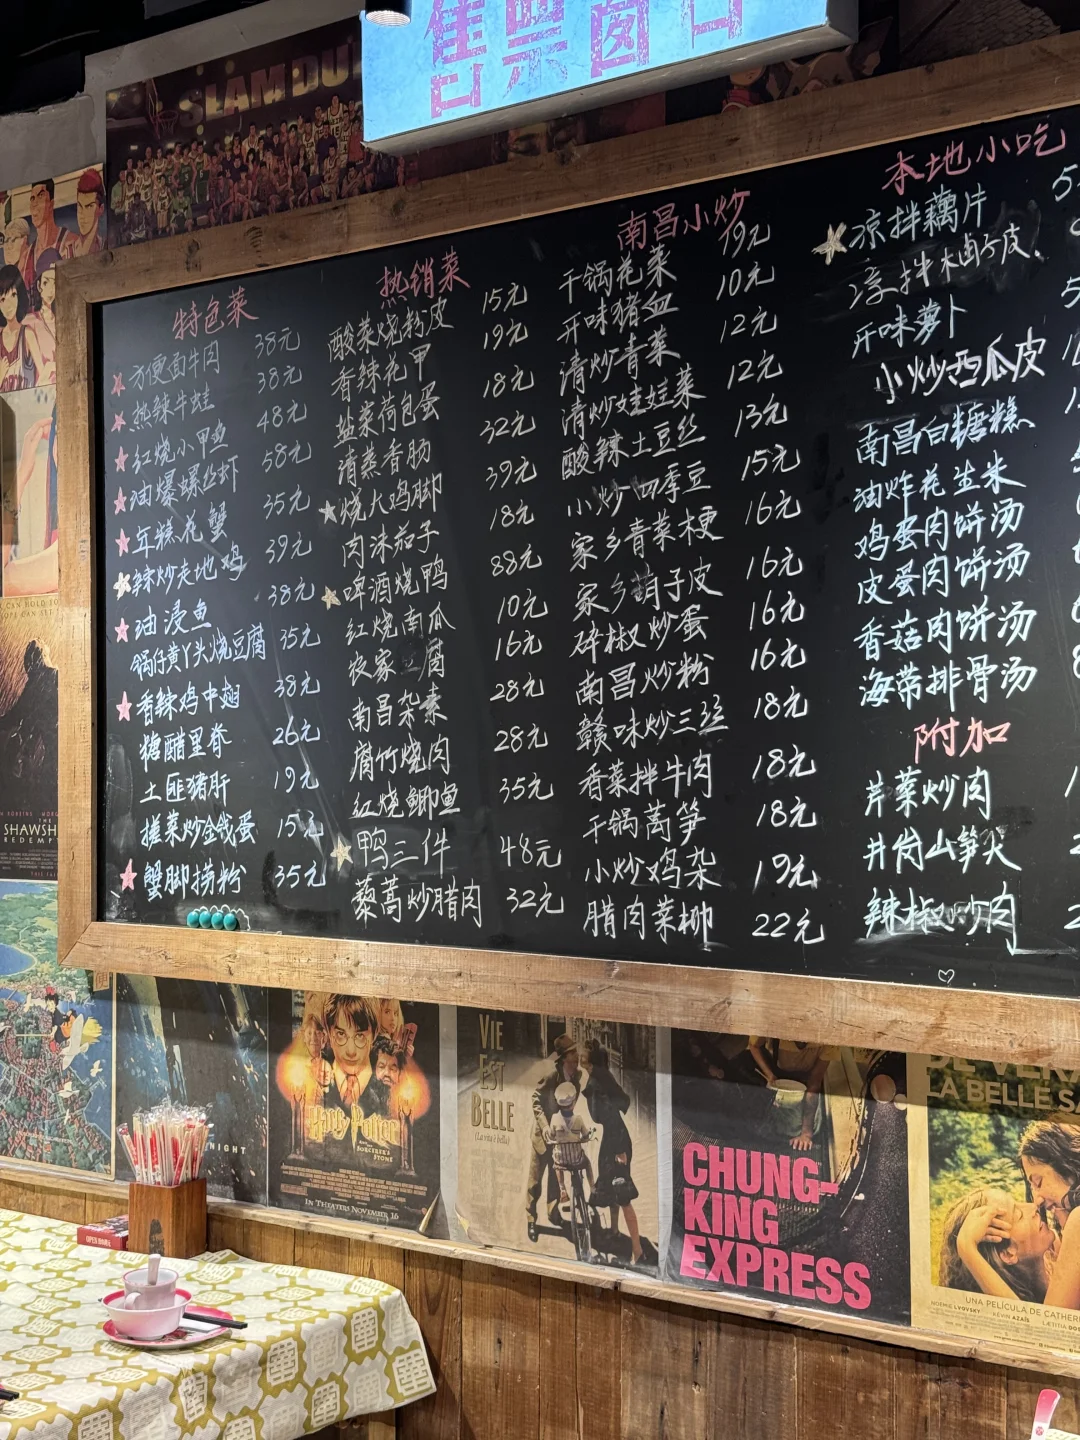 售票窗口
SLAM DU
特色菜
方便面牛肉 38元
热辣牛蛙 38元
红烧小甲鱼 48元
油爆螺丝虾 58元
年糕花蟹 35元
辣炒走地鸡 39元
油浸鱼 38元
锅仔黄丫头烧豆腐 35元
香辣鸡中翅 38元
糖醋里脊 26元
土匪猪肝 19元
搓菜炒金钱蛋 15元
蟹脚捞粉 35元
热销菜
酸菜烧粉皮 15元
香辣花甲 19元
盐菜荷包蛋 18元
清蒸香肠 32元
烧大鸡脚 39元
肉沫茄子 18元
啤酒烧鸭 88元
红烧南瓜 10元
农家豆腐 16元
南昌杂素 28元
腐竹烧肉 28元
红烧鲫鱼 35元
鸭三件 48元
藜蒿炒腊肉 32元
南昌小炒
干锅花菜 19元
开味猪血 10元
清炒青菜 12元
清炒娃娃菜 12元
酸辣土豆丝 13元
小炒四季豆 15元
家乡青菜梗 16元
家乡茄子皮 16元
碎椒炒蛋 16元
南昌炒粉 16元
赣味炒三丝 18元
香菜拌牛肉 18元
干锅莴笋 18元
小炒鸡杂 19元
腊肉菜柳 22元
本地小吃
凉拌藕片
开味萝卜
小炒西瓜皮
南昌白糖糕
油炸花生米
鸡蛋肉饼汤
皮蛋肉饼汤
香菇肉饼汤
海带排骨汤
附加
芹菜炒肉
井岗山笋尖
辣椒炒肉
THE
SHAWSH
REDEMP
NIGHT
Harry Potter
SORCERER'S STONE
IN THEATERS NOVEMBER 16
VIE
EST
BELLE
(La vita è bella)
CHUNG-
KING
EXPRESS
LA BELLE SA
UNA PELÍCULA DE CATHER
NOÉMIE LVOVSKY KÉVIN AZAÏS